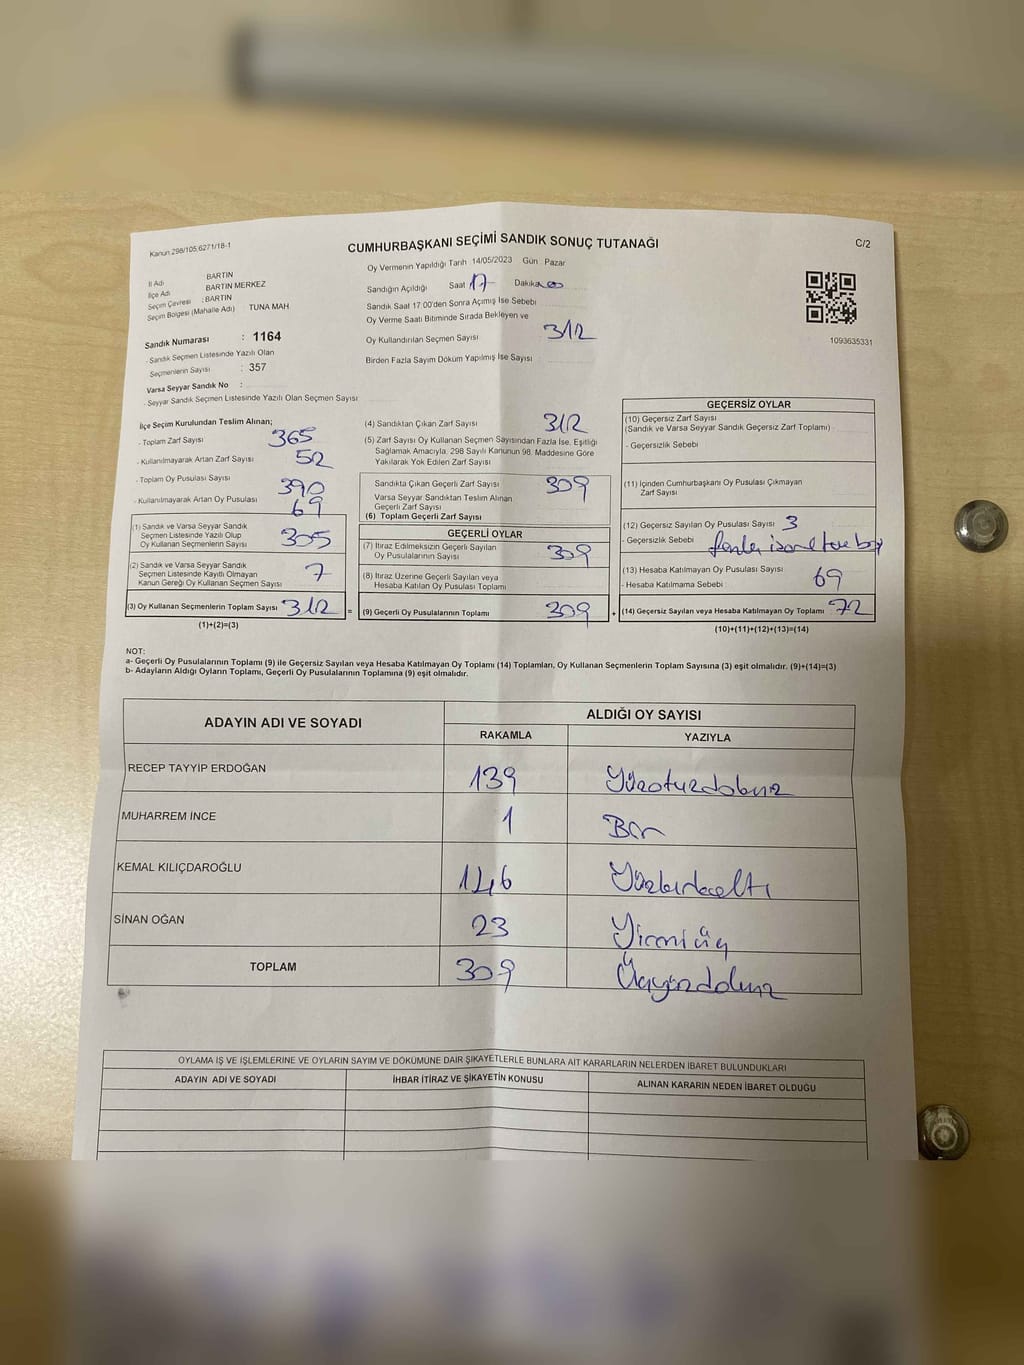 Kanun:298/105,6271/18-1
CUMHURBAŞKANI SEÇİMİ SANDIK SONUÇ TUTANAĞI
C/2
Oy Vermenin Yapıldığı Tarih 14/05/2023 Gün Pazar
İl Adı BARTIN
İlçe Adı BARTIN MERKEZ
Seçim Çevresi : BARTIN
Seçim Bölgesi (Mahalle Adı) TUNA MAH
Sandık Numarası : 1164
- Sandık Seçmen Listesinde Yazılı Olan
Seçmenlerin Sayısı : 357
Varsa Seyyar Sandık No :
- Seyyar Sandık Seçmen Listesinde Yazılı Olan Seçmen Sayısı
Sandığın Açıldığı Saat 17 Dakika 00
Sandık Saat 17:00'den Sonra Açımış İse Sebebi
Oy Verme Saati Bitiminde Sırada Bekleyen ve
Oy Kullandırılan Seçmen Sayısı 312
Birden Fazla Sayım Döküm Yapılmış İse Sayısı
1093635331
İlçe Seçim Kurulundan Teslim Alınan;
- Toplam Zarf Sayısı 365
- Kullanılmayarak Artan Zarf Sayısı 52
- Toplam Oy Pusulası Sayısı 390
- Kullanılmayarak Artan Oy Pusulası 69
(1) Sandık ve Varsa Seyyar Sandık
Seçmen Listesinde Yazılı Olup
Oy Kullanan Seçmenlerin Sayısı 305
(2) Sandık ve Varsa Seyyar Sandık
Seçmen Listesinde Kayıtlı Olmayan
Kanun Gereği Oy Kullanan Seçmen Sayısı 7
(3) Oy Kullanan Seçmenlerin Toplam Sayısı 312 =
(1)+(2)=(3)
(4) Sandıktan Çıkan Zarf Sayısı 312
(5) Zarf Sayısı Oy Kullanan Seçmen Sayısından Fazla İse, Eşitliği
Sağlamak Amacıyla, 298 Sayılı Kanunun 98. Maddesine Göre
Yakılarak Yok Edilen Zarf Sayısı
Sandıkta Çıkan Geçerli Zarf Sayısı 309
Varsa Seyyar Sandıktan Teslim Alınan
Geçerli Zarf Sayısı
(6) Toplam Geçerli Zarf Sayısı
GEÇERLİ OYLAR
(7) İtiraz Edilmeksizin Geçerli Sayılan
Oy Pusulalarının Sayısı 309
(8) İtiraz Üzerine Geçerli Sayılan veya
Hesaba Katılan Oy Pusulası Toplamı
(9) Geçerli Oy Pusulalarının Toplamı 309 +
GEÇERSİZ OYLAR
(10) Geçersiz Zarf Sayısı
(Sandık ve Varsa Seyyar Sandık Geçersiz Zarf Toplamı)
- Geçersizlik Sebebi
(11) İçinden Cumhurbaşkanı Oy Pusulası Çıkmayan
Zarf Sayısı
(12) Geçersiz Sayılan Oy Pusulası Sayısı 3
- Geçersizlik Sebebi
(13) Hesaba Katılmayan Oy Pusulası Sayısı 69
- Hesaba Katılmama Sebebi
(14) Geçersiz Sayılan veya Hesaba Katılmayan Oy Toplamı 72
(10)+(11)+(12)+(13)=(14)
NOT:
a- Geçerli Oy Pusulalarının Toplamı (9) ile Geçersiz Sayılan veya Hesaba Katılmayan Oy Toplamı (14) Toplamları, Oy Kullanan Seçmenlerin Toplam Sayısına (3) eşit olmalıdır. (9)+(14)=(3)
b- Adayların Aldığı Oyların Toplamı, Geçerli Oy Pusulalarının Toplamına (9) eşit olmalıdır.
ADAYIN ADI VE SOYADI ALDIĞI OY SAYISI
RAKAMLA YAZIYLA
RECEP TAYYİP ERDOĞAN 139 Yüzotuzdokuz
MUHARREM İNCE 1 Bir
KEMAL KILIÇDAROĞLU 146 Yüzkırkaltı
SİNAN OĞAN 23 Yirmi üç
TOPLAM 309 Üçyüzdokuz
OYLAMA İŞ VE İŞLEMLERİNE VE OYLARIN SAYIM VE DÖKÜMÜNE DAİR ŞİKAYETLERLE BUNLARA AİT KARARLARIN NELERDEN İBARET BULUNDUKLARI
ADAYIN ADI VE SOYADI İHBAR İTİRAZ VE ŞİKAYETİN KONUSU ALINAN KARARIN NEDEN İBARET OLDUĞU